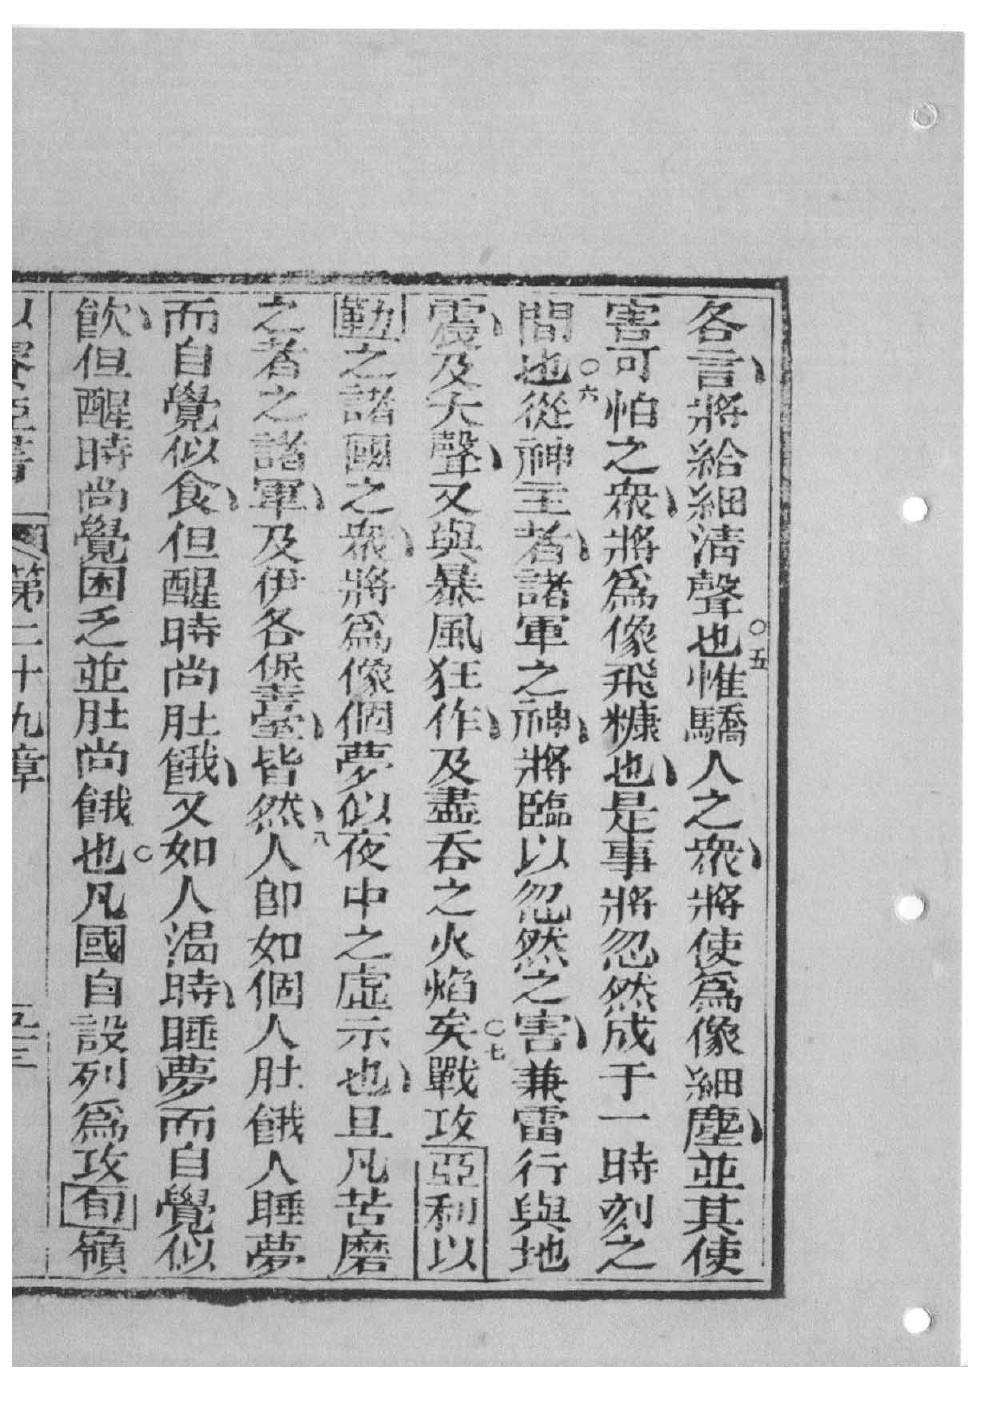 各言將給細清聲也○五惟驕人之衆將使爲像細塵並其使
害可怕之衆將爲像飛糠也是事將忽然成于一時刻之
間也○六從神主者諸軍之神將臨以忽然之害兼雷行與地
震及大聲又與暴風狂作及盡吞之火焰矣○七戰攻亞利以
勒之諸國之衆將爲像個夢似夜中之虛示也且凡苦磨
之者之諸軍及伊各保臺皆然八人卽如個人肚餓人睡夢
而自覺似食但醒時尚肚餓又如人渴時睡夢而自覺似
飲但醒時尚覺困乏並肚尚餓也○凡國自設列爲攻旬嶺
以賽亞書 第二十九章 五三